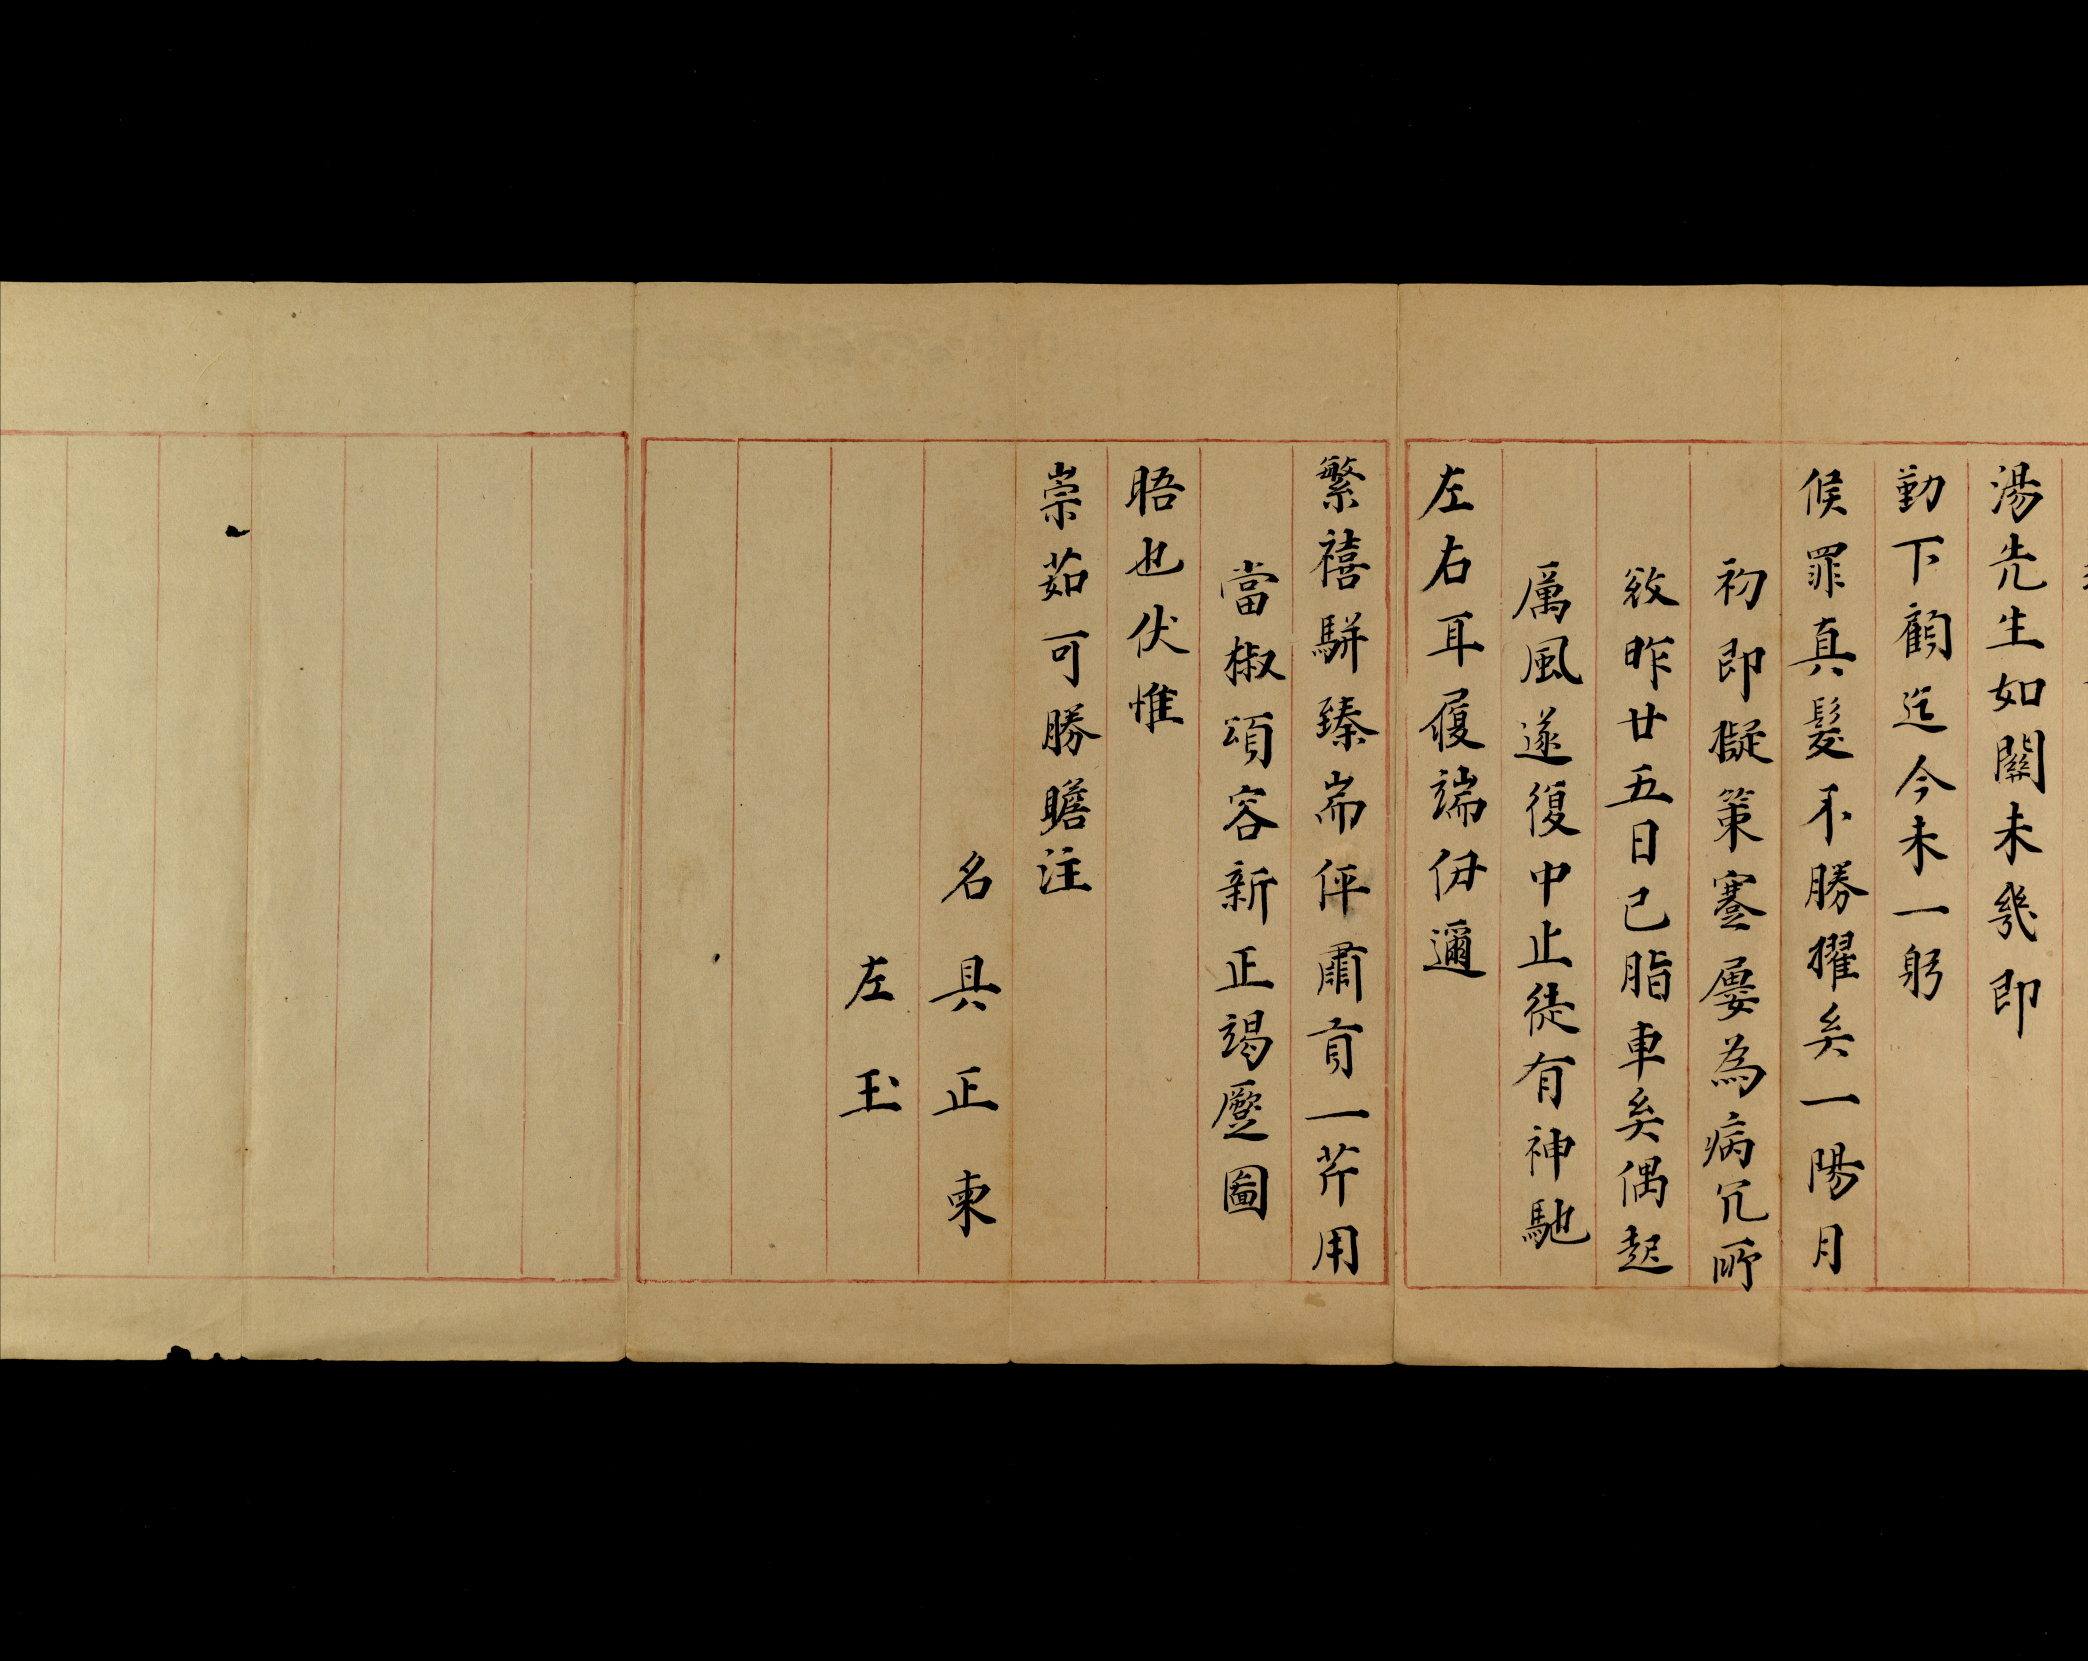 湯先生如關未幾即
勤下顧迄今未一躬
候罪真髮不勝擢矣一陽月
初即擬策蹇屢為病冗所
敚昨廿五日已脂車矣偶起
厲風遂復中止徒有神馳
左右耳履端伊邇
繁禧駢臻耑伻肅貢一芹用
當椒頌容新正竭蹷圖
晤也伏惟
崇茹可勝瞻注
名具正柬
左玉